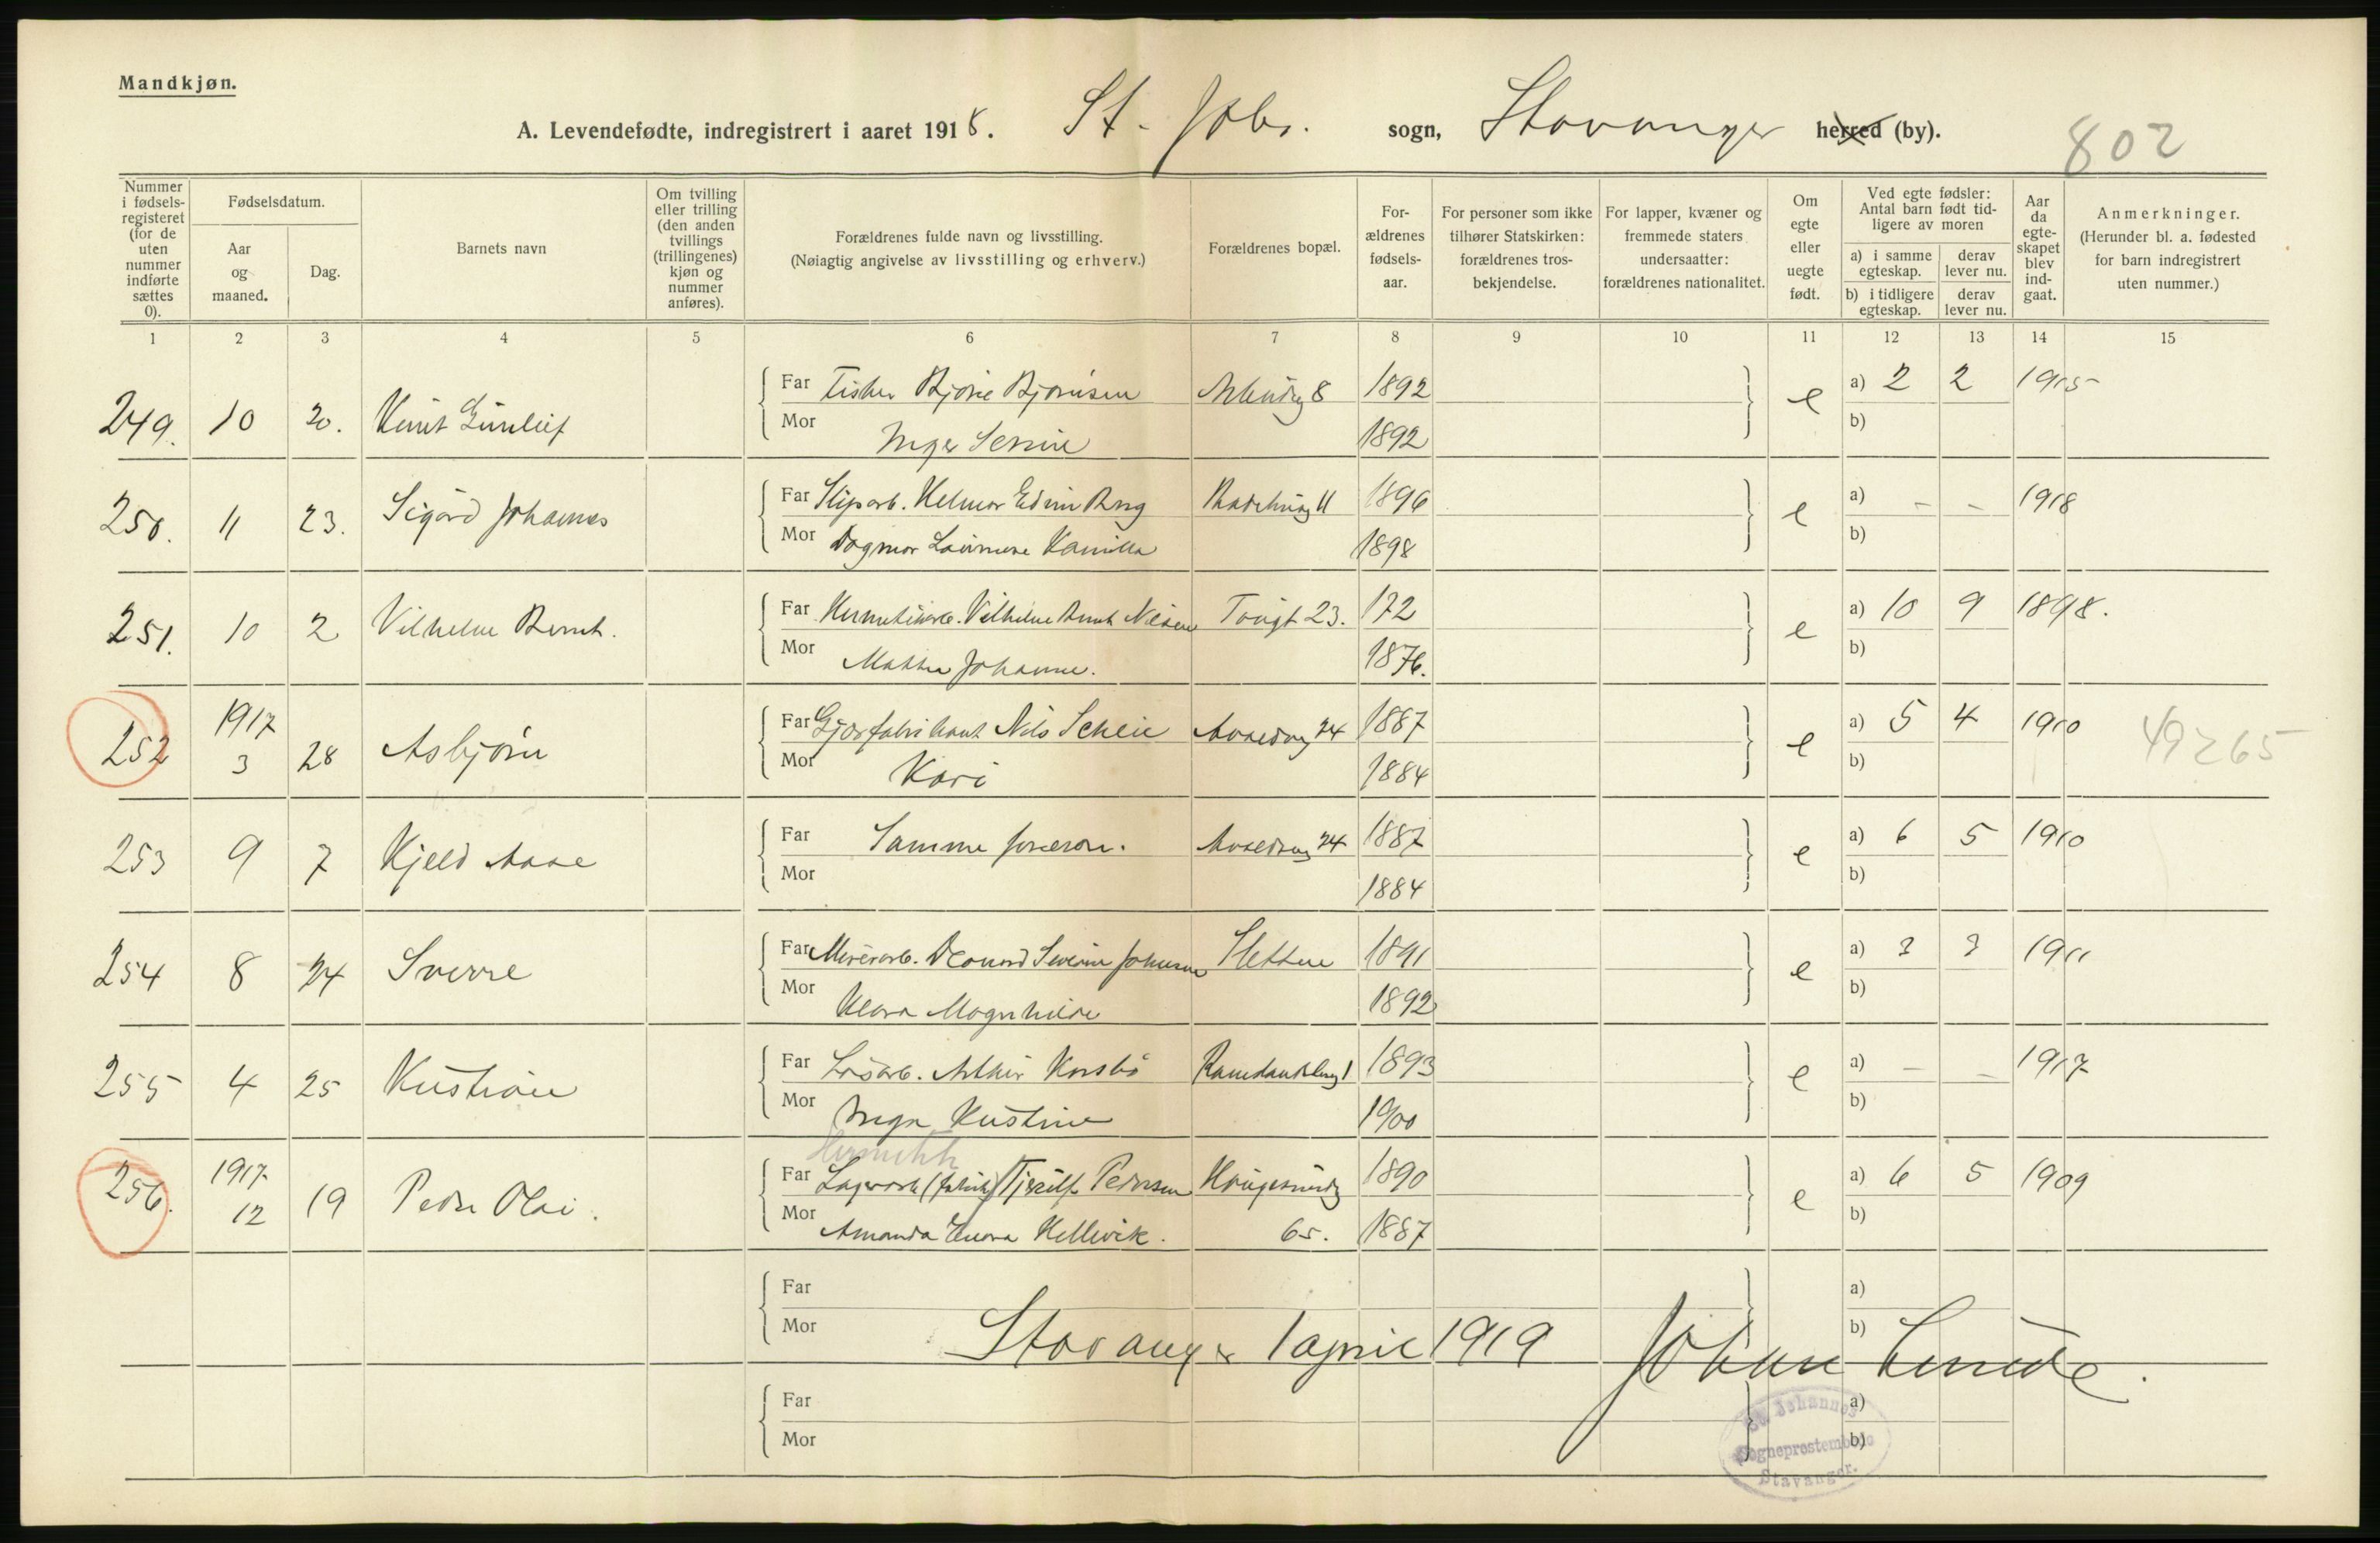 Mandkjøn.
A. Levendefødte, indregistrert i aaret 1918. St. Johs. sogn, Stavanger herred (by).
802
Nummer i fødsels-registeret (for de uten nummer indførte sættes 0).
Fødselsdatum.
Aar og maaned.
Dag.
Barnets navn
Om tvilling eller trilling (den anden tvillings (trillingenes) kjøn og nummer anføres).
Forældrenes fulde navn og livsstilling.
(Nøiagtig angivelse av livsstilling og erhverv.)
Forældrenes bopæl.
For-ældrenes fødsels-aar.
For personer som ikke tilhører Statskirken: forældrenes tros-bekjendelse.
For lapper, kvæner og fremmede staters undersaatter: forældrenes nationalitet.
Om egte eller uegte født.
Ved egte fødsler: Antal barn født tid-ligere av moren
a) i samme egteskap.
derav lever nu.
b) i tidligere egteskap.
derav lever nu.
Aar da egte-skapet blev ind-gaat.
Anmerkninger.
(Herunder bl. a. fødested for barn indregistrert uten nummer.)
1 2 3 4 5 6 7 8 9 10 11 12 13 14 15
249. 10 20. Knut Gunleif Far Fisker Bjørne Bjørnsen 8 1892 e a) 2 2 1915
Mor Inger Serine 1892 b)
250. 11 23. Sigurd Johannes Far Slip arb. Helmer Edvin Berg 11 1896 e a) - - 1918
Mor Dagmar Laurense Kamilla 1898 b)
251. 10 2 Vilhelm Bernt. Far Hermetikarb. Vilhelm Bernt Nilsen Torvgt 23. 172 e a) 10 9 1898.
Mor Mathea Johanne. 1876. b)
252 1917 3 28 Asbjørn Far Gjærfabrikant Nils Scheie 24 1887 e a) 5 4 1910 49265
Mor Kari 1884 b)
253 9 7 Kjeld Aase Far Samme foreldre. 24 1887 e a) 6 5 1910
Mor 1884 b)
254 8 24 Sverre Far Murerarb. Severin Johnsen Sletten 1891 e a) 3 3 1911
Mor Klara Magnhilde 1892 b)
255 4 25 Kristian Far Løsarb. Arthur 1 1893 e a) - - 1917
Mor Inga Kristine 1900 b)
Hermetik
256. 1917 12 19 Peder Olai. Far Lagerarb (fabrik) Pedersen 1890 e a) 6 5 1909
Mor Amanda Hellevik. 65. 1887 b)
Far a)
Mor b)
Stavanger 1 april 1919 Johan Lunde.
Far a)
Mor b)
St. Johannes
Sogneprestembede
Stavanger.